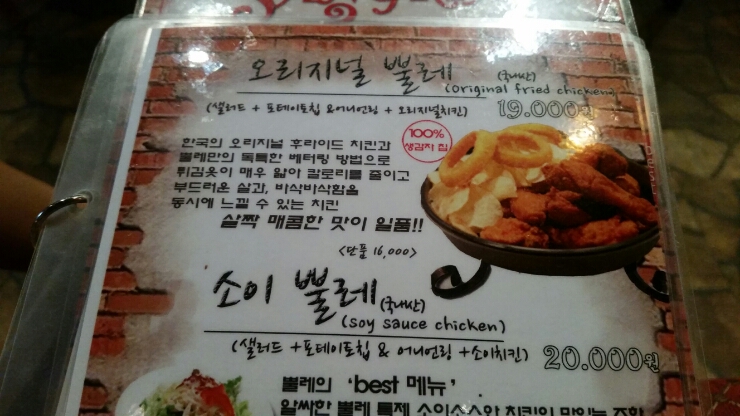 오리지널 뿔레 (국내산)
(original fried chicken)
(샐러드 + 포테이토칩 &어니언링 + 오리지널치킨) 19.000원
100%
생감자 칩
한국의 오리지널 후라이드 치킨과
뿔레만의 독특한 배터링 방법으로
튀김옷이 매우 얇아 칼로리를 줄이고
부드러운 살과, 바삭바삭함을
동시에 느낄 수 있는 치킨
살짝 매콤한 맛이 일품!!
<단품 16,000>
소이 뿔레 (국내산)
(soy sauce chicken)
(샐러드 +포테이토칩 & 어니언링 +소이치킨) 20.000원
뿔레의 'best 메뉴'
알싸한 뿔레 특제 소이소스와 치킨의 맛있는 조화